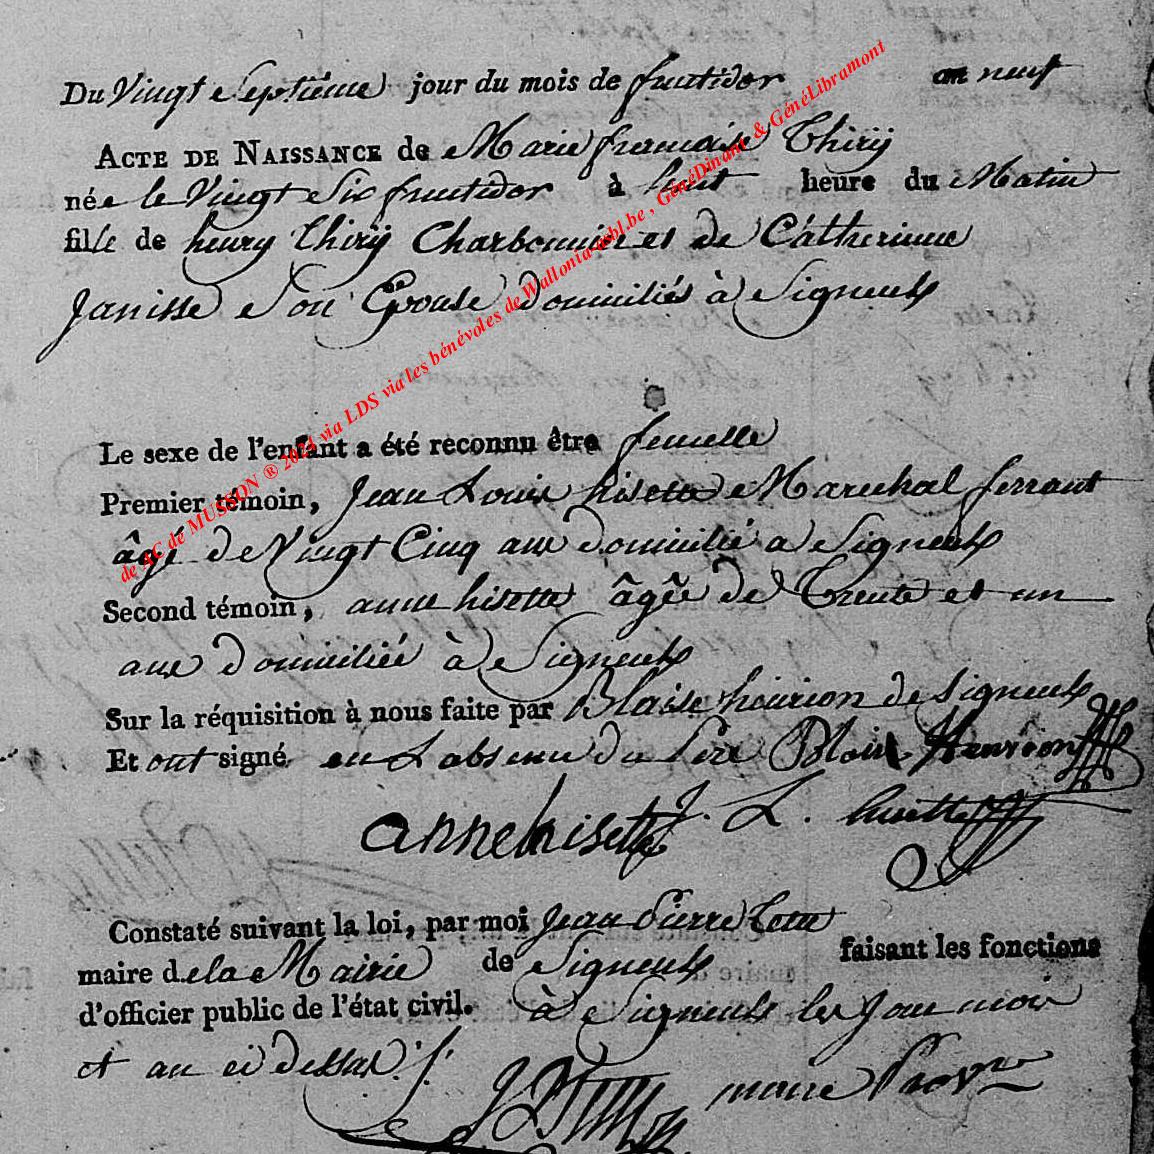 Du Vingt Septieme jour du mois de fructidor an neuf
ACTE DE NAISSANCE de Marie francoise Thirÿ
née le Vingt Six fructidor à huit heure du Matin
fille de henry thirÿ Charbonnier et de Cátherinne
Janisse Son Epouse domiciliés à Signeulx
Le sexe de l'enfant a été reconnu être femelle
Premier témoin, Jean Louis hisette Marechal ferrant
âgé de Vingt Cinq ans domicilié a Signeulx
Second témoin, anne hisette âgée de Trente et un
ans domiciliée à Signeulx
Sur la réquisition à nous faite par Blaise henrion de Signeulx
Et ont signé en L absence du Pere Blaise Henrion
anne hisette J. L. hisette
Constaté suivant la loi, par moi Jean Pierre
maire de la Mairie de Signeulx faisant les fonctions
d'officier public de l'état civil. à Signeulx les Jour mois
et an ci dessus
maire Prov.re
de AC de MUSSON ® 2024 via LDS via les bénévoles de Wallonia-asbl.be , GénéDinant & GénéLibramont